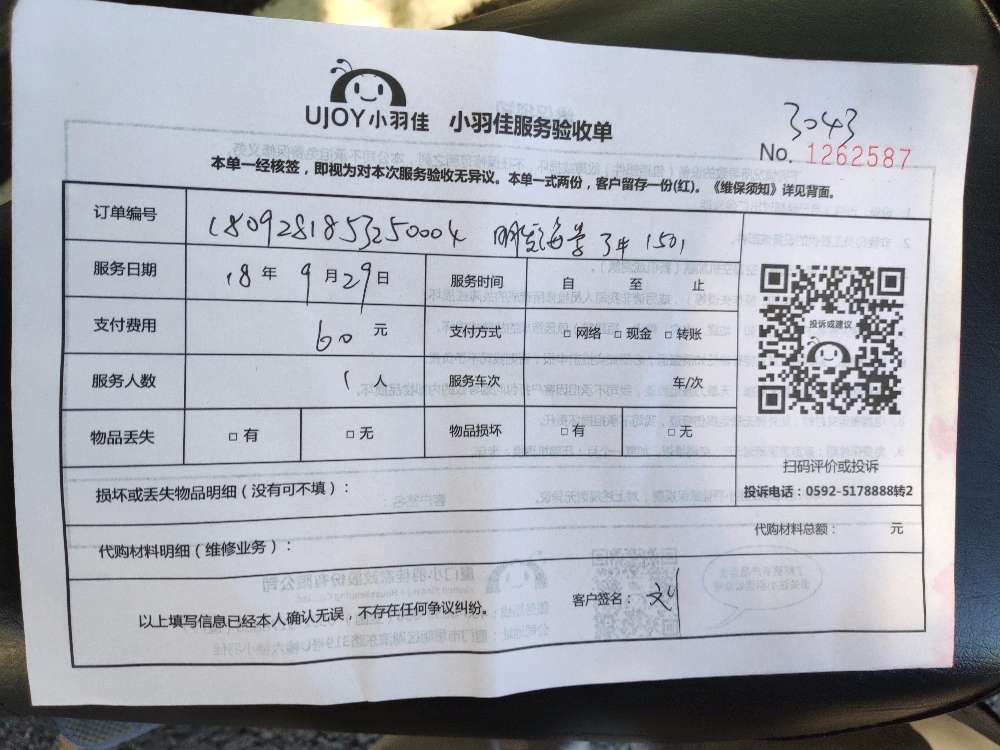 UJOY小羽佳 小羽佳服务验收单
3043
No. 1262587
本单一经核签，即视为对本次服务验收无异议。本单一式两份，客户留存一份(红)。《维保须知》详见背面。
订单编号 1809281853250004 1501
服务日期 18 年 9 月 29 日 服务时间 自 至 止
支付费用 60 元 支付方式 □ 网络 □ 现金 □ 转账
服务人数 1 人 服务车次 车/次
物品丢失 □ 有 □ 无 物品损坏 □ 有 □ 无
投诉或建议
扫码评价或投诉
投诉电话：0592-5178888转2
损坏或丢失物品明细（没有可不填）：
代购材料总额： 元
代购材料明细（维修业务）：
以上填写信息已经本人确认无误，不存在任何争议纠纷。 客户签名：